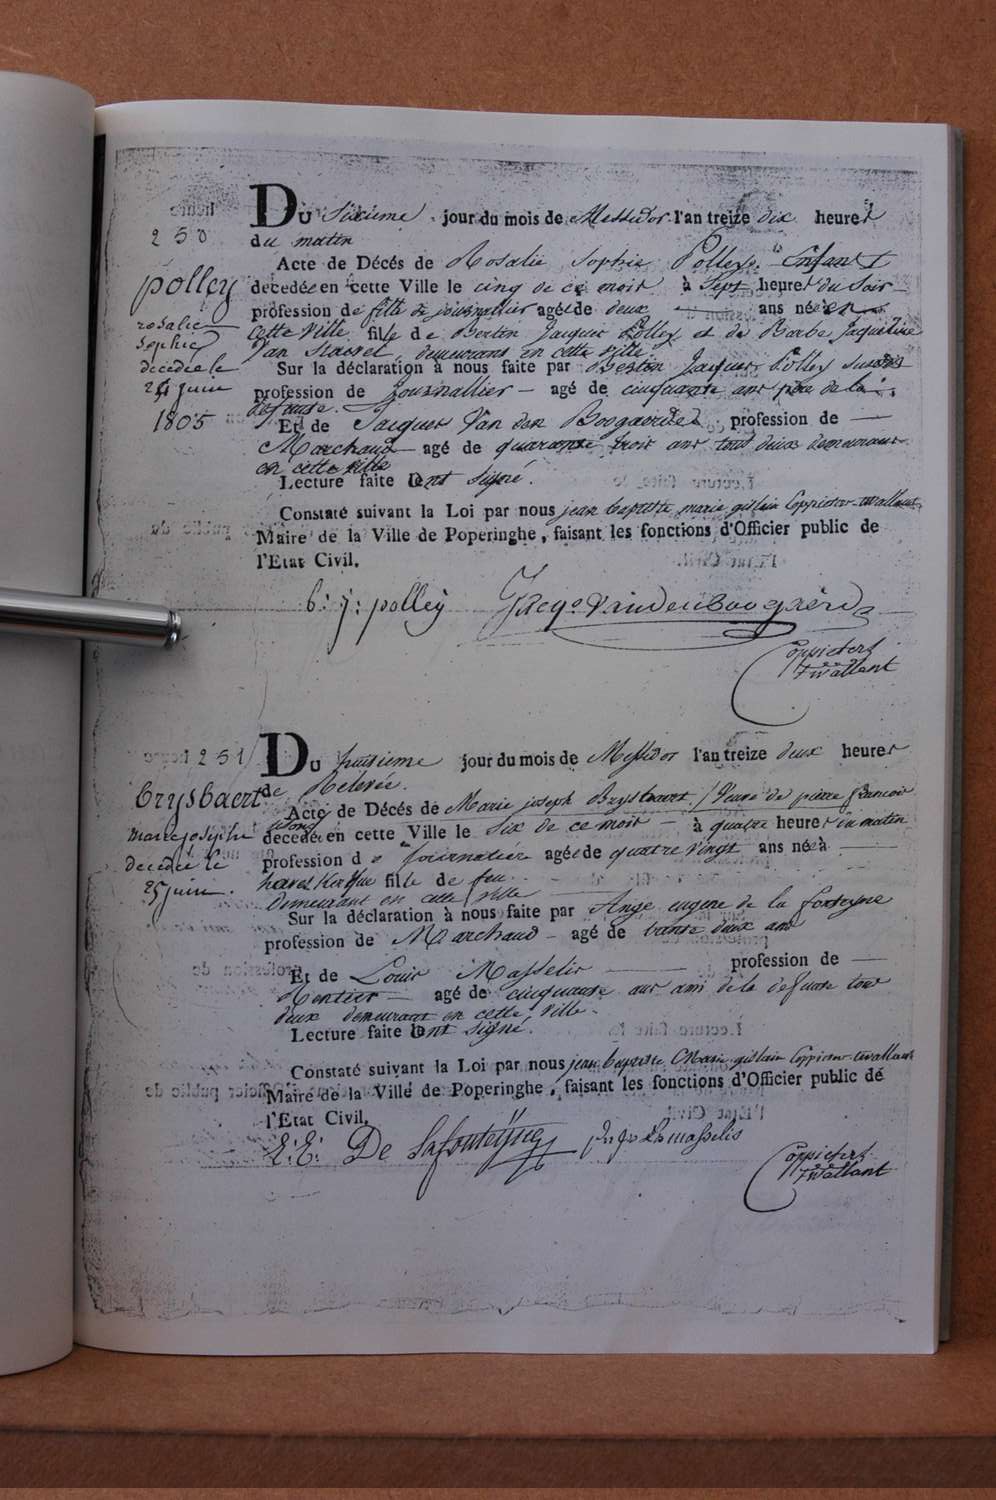 250
polley
rosalie
Sophie
decedée le
24 juin
1805
Du Sixieme jour du mois de Messidor l'an treize dix heures
du matin
Acte de Décés de Rosalie Sophie Polley Enfant
decedée en cette Ville le cinq de ce mois à Sept heures du Soir
profession de fille de journallier agée de deux ans née en
cette ville fille de Bertin Jacques Polley et de Barbe Jacqueline
Van Stavel, demeurans en cette ville
Sur la déclaration à nous faite par Bertin Jacques Polley
profession de Journallier agé de cinquante ans pere de la
defunte. Et de Jacques Van den Boogaerde profession de
Marchand agé de quarante trois ans tout deux demeurans
en cette ville
Lecture faite ont Signé.
Constaté suivant la Loi par nous jean baptiste marie gislain Coppieters-twallant
Maire de la Ville de Poperinghe, faisant les fonctions d'Officier public de
l'Etat Civil.
b: j: polley Jacqs Vanden Boogaerde
Coppieters
twallant
251
brysbaert
marie josephe
decedée le
25 juin.
Du huitieme jour du mois de Messidor l'an treize deux heures
de Relevée.
Acte de Décés de Marie joseph Brysbaert / Veuve de pierre francois
decedée en cette Ville le Six de ce mois à quatre heures du matin
profession de Journaliére agée de quatre vingt ans née à
haveskerque fille de feu
demeurant en cette ville
Sur la déclaration à nous faite par Ange eugene de la fonteyne
profession de Marchand agé de trente deux ans
Et de Louis Masselis profession de
Rentier agé de cinquante ans ami de la defunte tous
deux demeurant en cette ville.
Lecture faite ont Signé.
Constaté suivant la Loi par nous jean baptiste Marie gislain Coppieters-twallant
Maire de la Ville de Poperinghe, faisant les fonctions d'Officier public de
l'Etat Civil.
De Lafonteyne masselis
Coppieters
twallant